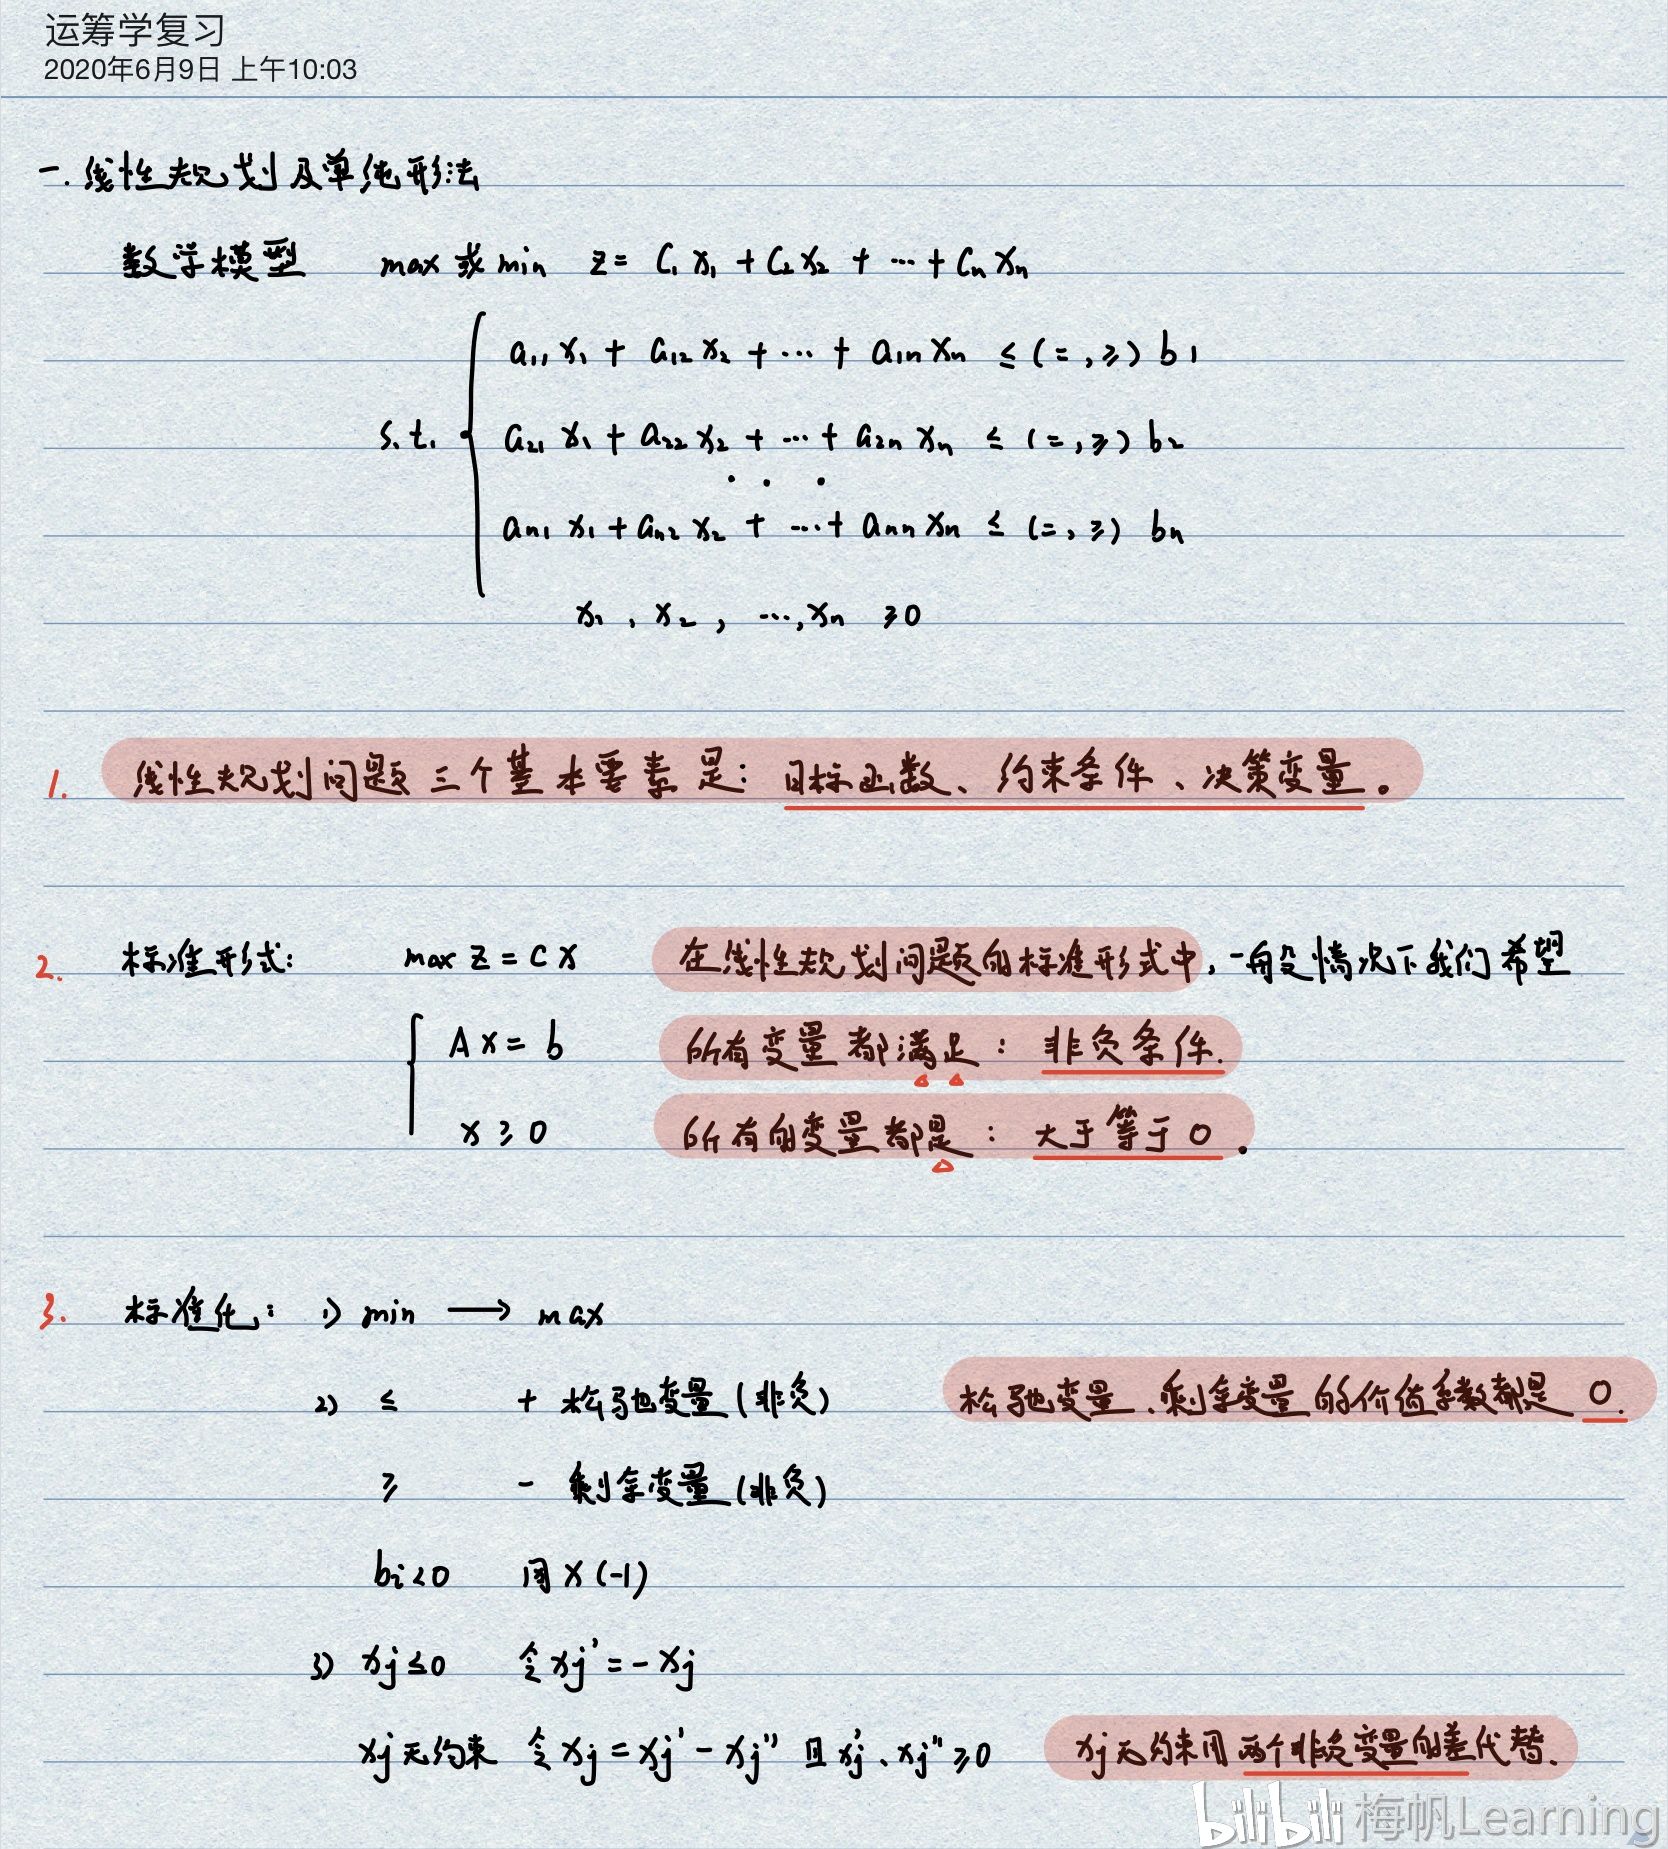 运筹学复习
2020年6月9日 上午10:03
一. 线性规划及单纯形法
数学模型 max 或 min z = C₁x₁ + C₂x₂ + … + Cₙxₙ
a₁₁x₁ + a₁₂x₂ + … + a₁ₙxₙ ≤ (=, ≥) b₁
s.t. { a₂₁x₁ + a₂₂x₂ + … + a₂ₙxₙ ≤ (=, ≥) b₂
. . .
aₙ₁x₁ + aₙ₂x₂ + … + aₙₙxₙ ≤ (=, ≥) bₙ
x₁, x₂, …, xₙ ≥ 0
1. 线性规划问题三个基本要素是: 目标函数、约束条件、决策变量。
2. 标准形式: max z = C x 在线性规划问题的标准形式中, 一般情况下我们希望
{ A x = b 所有变量都满足: 非负条件.
x ≥ 0 所有的变量都是: 大于等于 0.
3. 标准化: 1) min → max
2) ≤ + 松弛变量 (非负) 松弛变量、剩余变量的价值系数都是 0.
≥ - 剩余变量 (非负)
bi<0 同×(-1)
3) xj ≤ 0 令 xj' = - xj
xj 无约束 令 xj = xj' - xj'' 且 xj'、xj'' ≥ 0 xj 无约束用两个非负变量的差代替.
bilibili 梅帆Learning